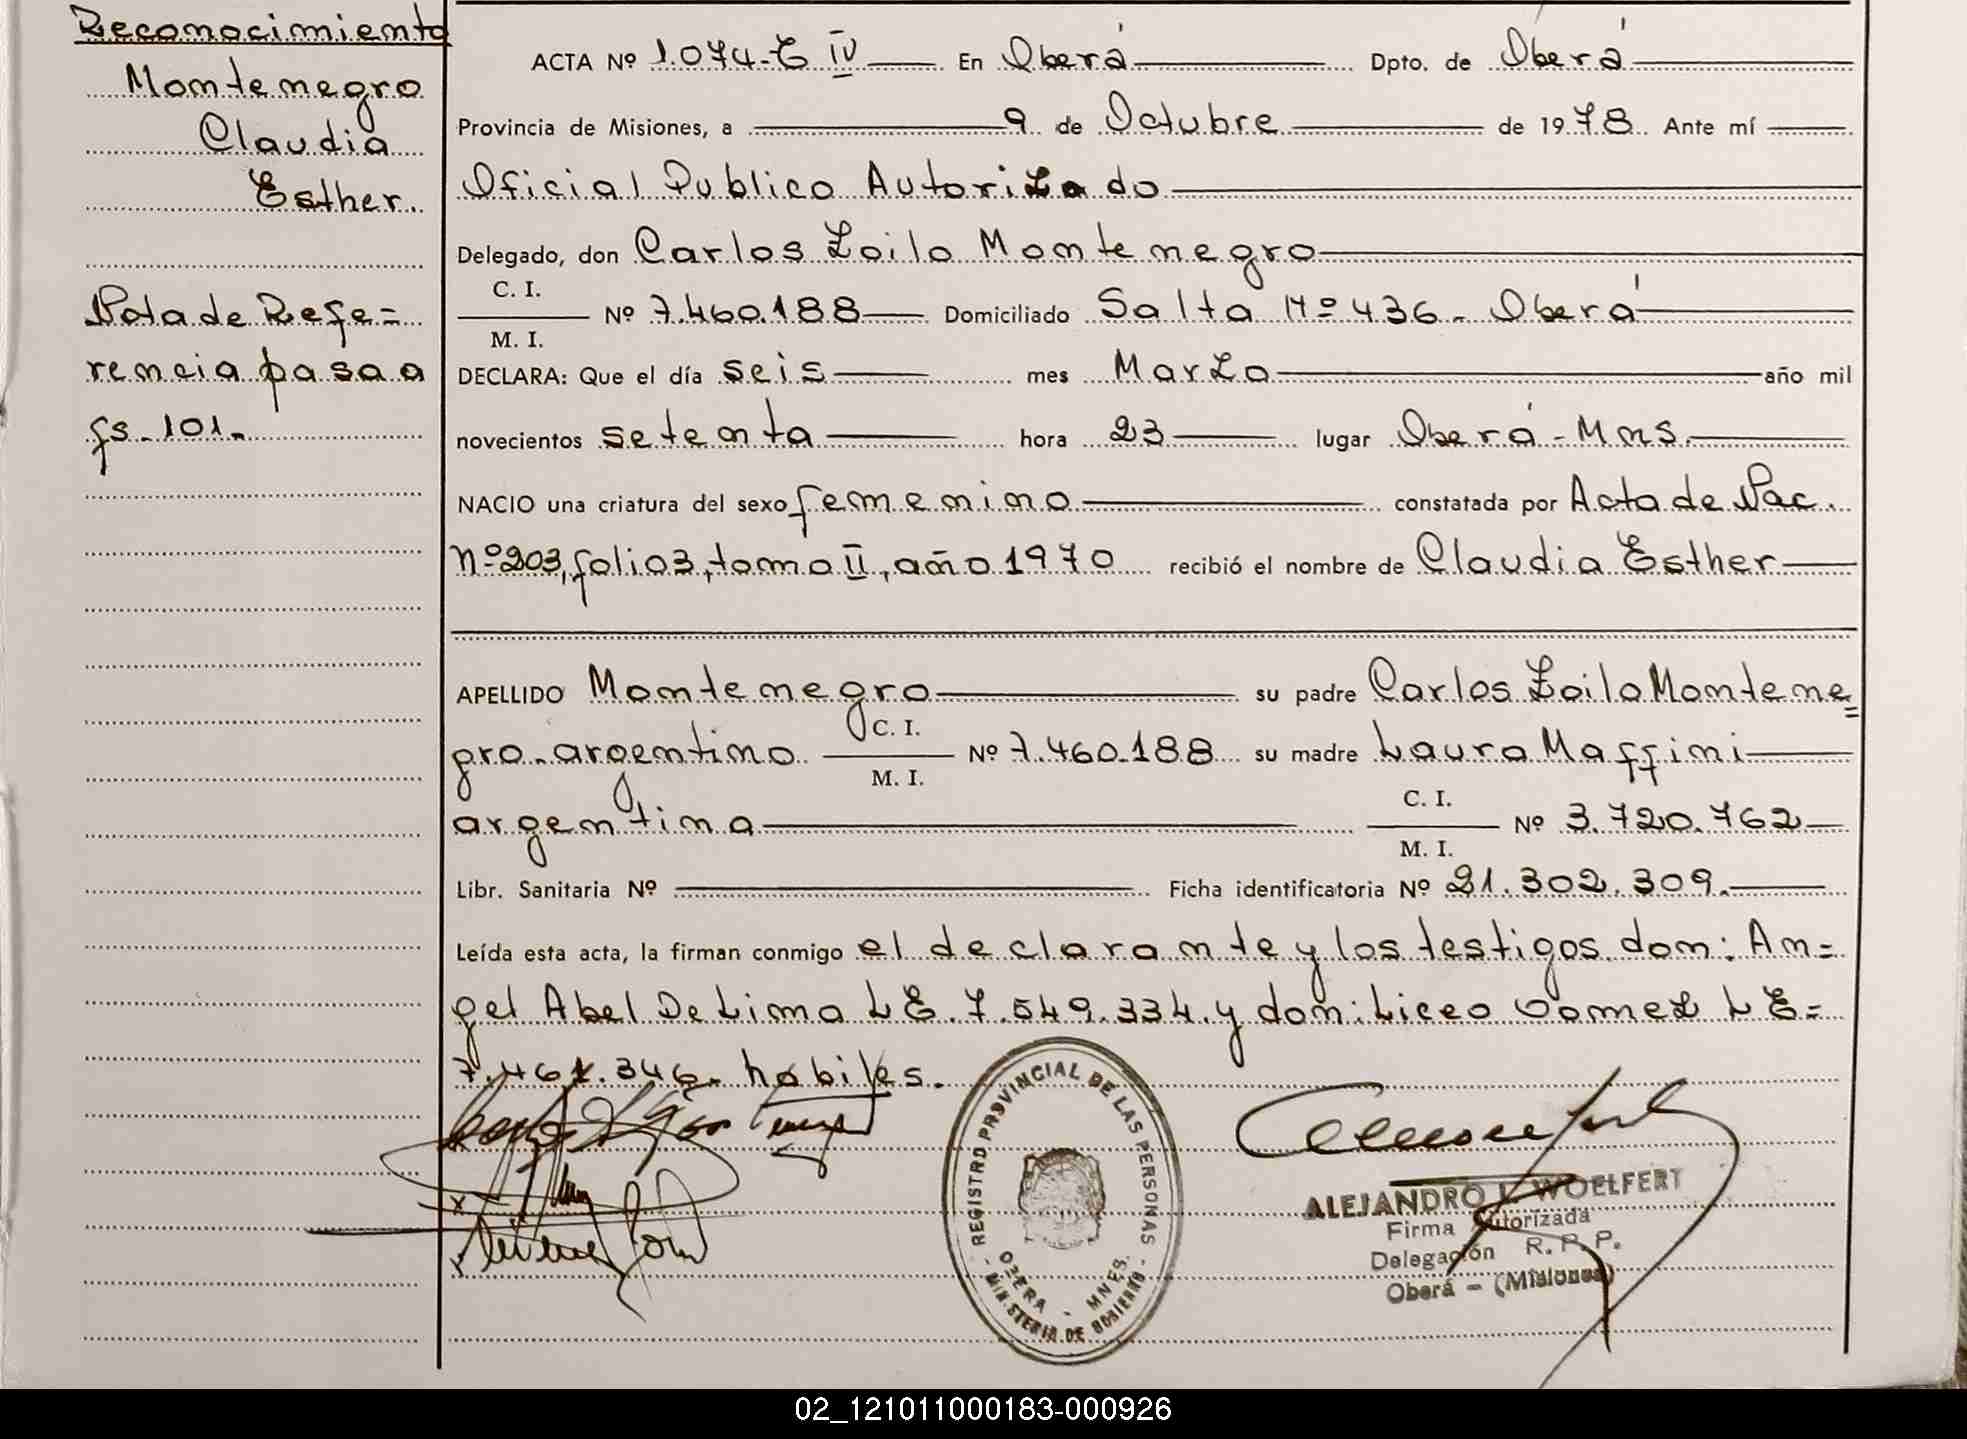 Reconocimiento
Montenegro
Claudia
Esther.
Nota de Refe=
rencia pasa a
fs. 101.
ACTA Nº 1.074-T IV En Oberá Dpto. de Oberá
Provincia de Misiones, a 9 de Octubre de 1978. Ante mí
Oficial Publico Autorizado
Delegado, don Carlos Zoilo Montenegro
C. I.
M. I.
Nº 7.460.188 Domiciliado Salta Nº 436. Oberá
DECLARA: Que el día seis mes Marzo año mil
novecientos setenta hora 23 lugar Oberá - Mns.
NACIO una criatura del sexo femenino constatada por Acta de Nac.
Nº 203, folio 3, tomo II, año 1970 recibió el nombre de Claudia Esther
APELLIDO Montenegro su padre Carlos Zoilo Montene=
gro. argentino C. I.
M. I. Nº 7.460.188 su madre Laura Maffini
argentina C. I.
M. I. Nº 3.720.762
Libr. Sanitaria Nº Ficha identificatoria Nº 21.302.309.
Leída esta acta, la firman conmigo el declarante y los testigos don: An=
gel Abel De Lima LE. 7.549.334. y don: Liceo Gomez LE=
7.461.346. habiles.
REGISTRO PROVINCIAL DE LAS PERSONAS
OBERA - MNES.
MINISTERIO DE GOBIERNO
ALEJANDRO L. WOELFERT
Firma Autorizada
Delegación R. P. P.
Oberá - (Misiones)
02_121011000183-000926